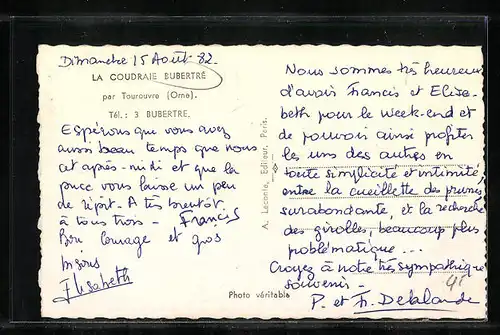 Dimanche 15 Août 82.
LA COUDRAIE BUBERTRÉ
par Tourouvre (Orne).
Tél. : 3 BUBERTRE.
Espérons que vous avez
aussi beau temps que nous
cet après-midi et que la
puce vous laisse un peu
de répit. A très bientôt,
à tous trois - Francis
Bon courage et gros
bisous
Elisabeth
A. Leconte, Editeur, Paris.
Nous sommes très heureux
d'avoir Francis et Eliza-
beth pour le week-end et
de pouvoir ainsi profiter
les uns des autres en
toute simplicité et intimité,
entre la cueillette des prunes
surabondante, et la recherche
des girolles, beaucoup plus
problématique...
Croyez à notre très sympathique
souvenir -
P. et Fr. Delalande
Photo véritable